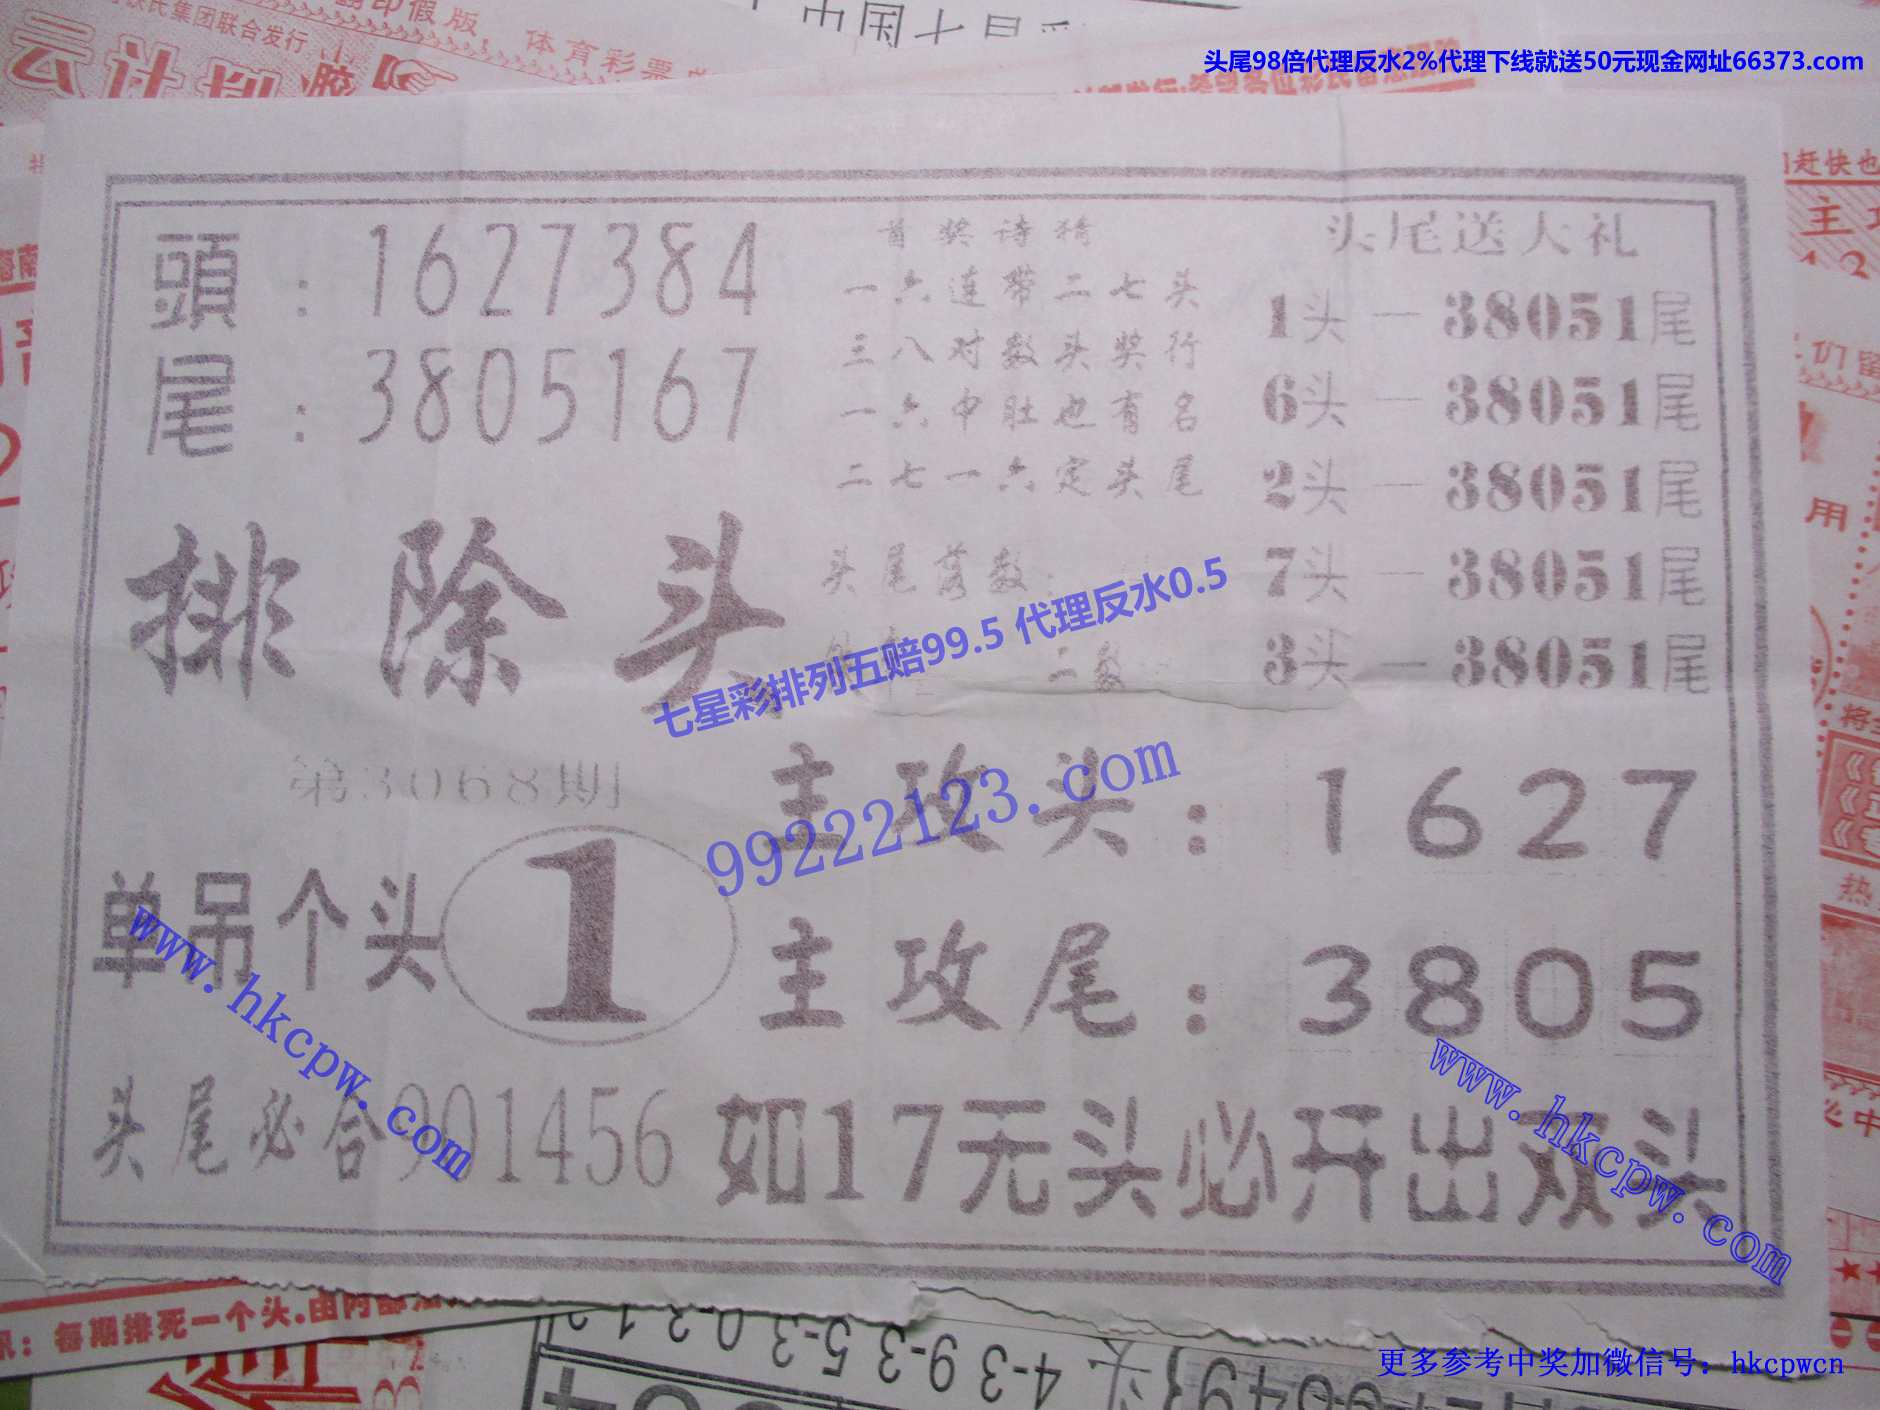 头尾98倍代理反水2%代理下线就送50元现金网址66373.com
氏集团联合发行
印假版
体育彩票
頭：1627384
尾：3805167
首奖诗猜
一六连带二七头
三八对数头奖行
一六中肚也有名
二七一六定头尾
头尾送大礼
1头—38051尾
6头—38051尾
2头—38051尾
7头—38051尾
3头—38051尾
排除头
头尾落数：
二数
七星彩排列五赔99.5 代理反水0.5
99222123.com
第3068期
单吊个头 1
主攻头：1627
主攻尾：3805
www.hkcpw.com
www.hkcpw.com
头尾必合901456
如17无头必开出双头
赶快也
主
用
热
每期排死一个头.由内部
4-39-35-30-31
更多参考中奖加微信号：hkcpwcn